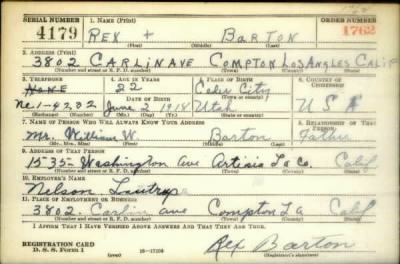 SERIAL NUMBER 1. NAME (Print) ORDER NUMBER
4179 REX + BARTON 1762
(First) (Middle) (Last)
2. ADDRESS (Print)
3802 CARLIN AVE COMPTON LOS ANGLES CALIF
(Number and street or R. F. D. number) (Town) (County) (State)
3. TELEPHONE 4. AGE IN YEARS 5. PLACE OF BIRTH 6. COUNTRY OF CITIZENSHIP
None 22 City
Ne.1-4232 DATE OF BIRTH June 2 1918 Utah U S A
(Exchange) (Number) (Mo.) (Day) (Yr.) (State or country)
7. NAME OF PERSON WHO WILL ALWAYS KNOW YOUR ADDRESS 8. RELATIONSHIP OF THAT PERSON
Mr. William W. Barton Father
(Mr., Mrs., Miss) (First) (Middle) (Last)
9. ADDRESS OF THAT PERSON
1535 Washington Ave Artisia La Co. Calif
(Number and street or R. F. D. number) (Town) (County) (State)
10. EMPLOYER'S NAME
Nelson
11. PLACE OF EMPLOYMENT OR BUSINESS
3802 Carlin ave Compton La Calif
(Number and street or R. F. D. number) (Town) (County) (State)
I AFFIRM THAT I HAVE VERIFIED ABOVE ANSWERS AND THAT THEY ARE TRUE.
REGISTRATION CARD
D. S. S. Form 1 16-17105 Rex Barton